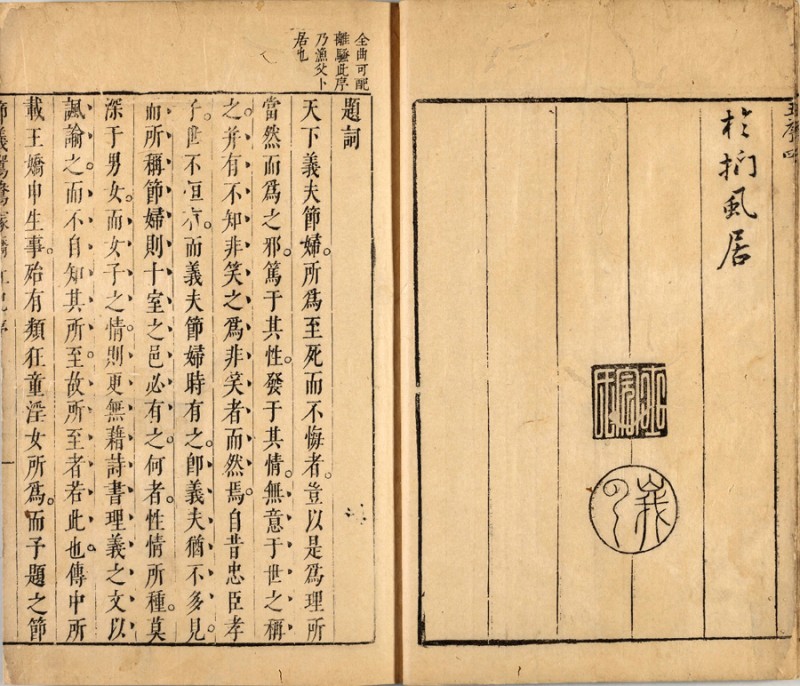 王序四
居
全曲可配
離騷此序
乃漁父卜
居也
題詞
天下義夫節婦。所爲至死而不悔者。豈以是爲理所
當然而爲之邪。篤于其性。發于其情。無意于世之稱
之。并有不知非笑之爲非笑者而然焉。自昔忠臣孝
子世不恒有。而義夫節婦時有之。卽義夫猶不多見。
而所稱節婦則十室之邑必有之。何者。性情所種。莫
深于男女。而女子之情。則更無藉詩書理義之文以
諷諭之。而不自知其所至。故所至者若此也。傳中所
載王嬌申生事。殆有類狂童淫女所爲。而予題之節
節義鴛鴦塚嬌紅記序 一